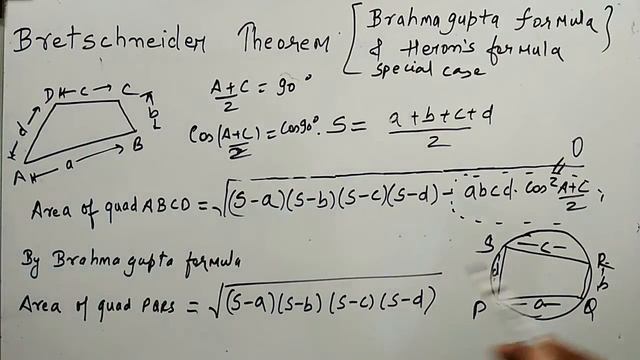 Bretschneider Theorem [Brahmagupta formula
& Heron's formula
special case]
A+C/2 = 90°
D C c
d b
A a B
Cos(A+C/2) = cos90°. S = a+b+c+d/2
0
Area of quad ABCD = √(S-a)(S-b)(S-c)(S-d) - abcd. cos²A+C/2 ;
By Brahmagupta formula
S c R
d b
P a Q
Area of quad PQRS = √(S-a)(S-b)(S-c)(S-d)